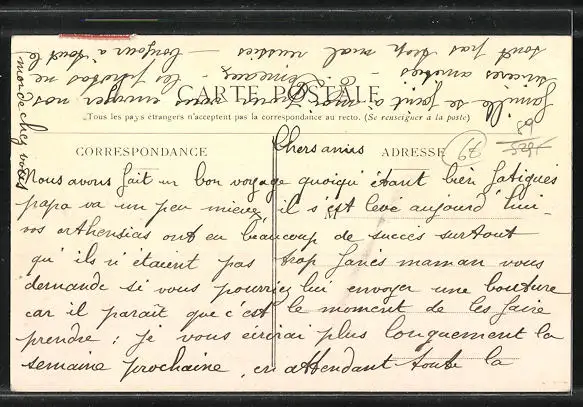 CARTE POSTALE
Tous les pays étrangers n'acceptent pas la correspondance au recto. (Se renseigner à la poste)
CORRESPONDANCE
ADRESSE
62
89
Chers amis
Nous avons fait un bon voyage quoiqu'étant bien fatigués
papa va un peu mieux, il s'est levé aujourd'hui -
vos orthensias ont eu beaucoup de succès surtout
qu'ils n'étaient pas trop fanés maman vous
demande si vous pourriez lui envoyer une bouture
car il parait que c'est le moment de les faire
prendre ; je vous écrirai plus longuement la
semaine prochaine, en attendant toute la
famille se joint à moi pour vous envoyer nos
sincères amitiés -
les photos ne
sont pas trop mal réussies - bonjour à tout le
monde chez vous